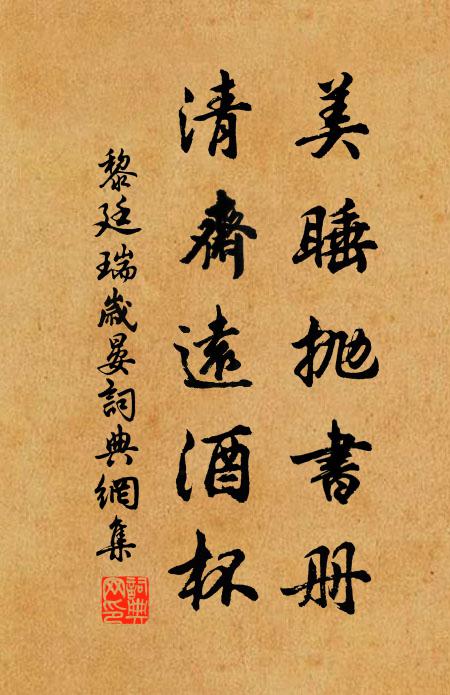 美睡抛書册
清齋遠酒杯
黎廷瑞歲晏詞典網集
詞典網印